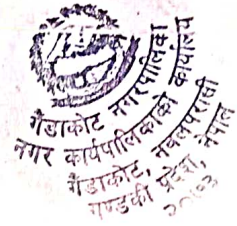 गैंडाकोट नगरपालिका
नगर कार्यपालिकाको कार्यालय
गैंडाकोट, नवलपरासी
गण्डकी प्रदेश, नेपाल
२०७३